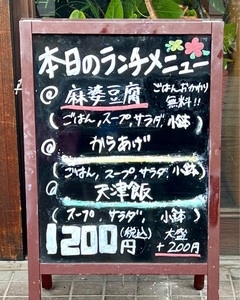 本日のランチメニュー
◎ 麻婆豆腐 ごはんおかわり無料!!
(ごはん、スープ、サラダ 小鉢)
◎ からあげ
(ごはん、スープ、サラダ 小鉢)
◎ 天津飯
(スープ、サラダ、小鉢)
1200円(税込) 大盛+200円